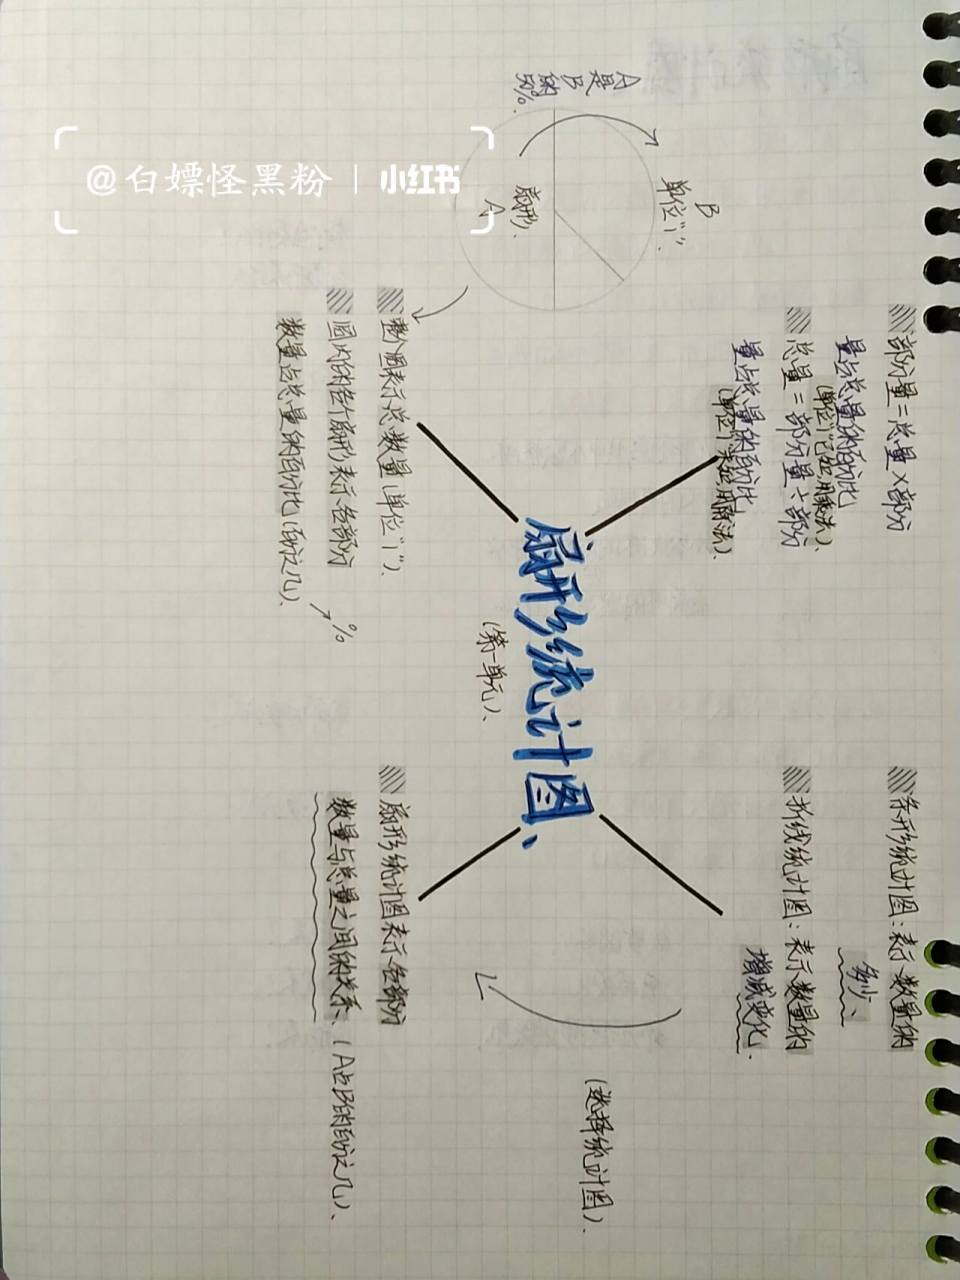 部分量=总量×部分
量占总量的百分比
(单位"1"已知用乘法)、
总量=部分量÷部分
量占总量的百分比
(单位"1"未知用除法)、
B
单位"1"、
扇形、
A
A是B的50%、
整个圆表示总数量(单位"1")、
圆内的各个扇形表示各部分
数量占总量的百分比(百分之几)、
%
扇形统计图、
(第一单元)、
条形统计图:表示数量的
多少、
折线统计图:表示数量的
增减变化、
(选择统计图)、
扇形统计图表示各部分
数量与总量之间的关系、(A占B的百分之几)、
@白嫖怪黑粉 | 小红书